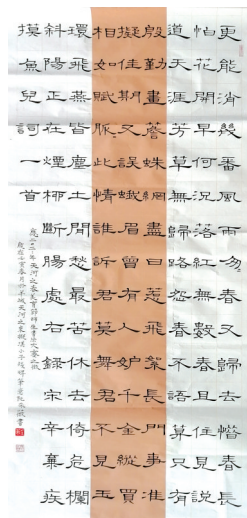 更能幾番風雨匆春又歸去惜春長
怕花開早何況落紅無數春且住見說
道天涯芳草無歸路怨春不語算只有
殷勤畫簷蛛網盡日惹飛絮長門事准
擬佳期又誤蛾眉曾有人妒千金縱買
相如賦脈此情誰訴君莫舞君不見玉
環飛燕皆塵土閒愁最苦休去倚危欄
斜陽正在煙柳斷腸處右錄宋辛棄疾
摸魚兒詞一首